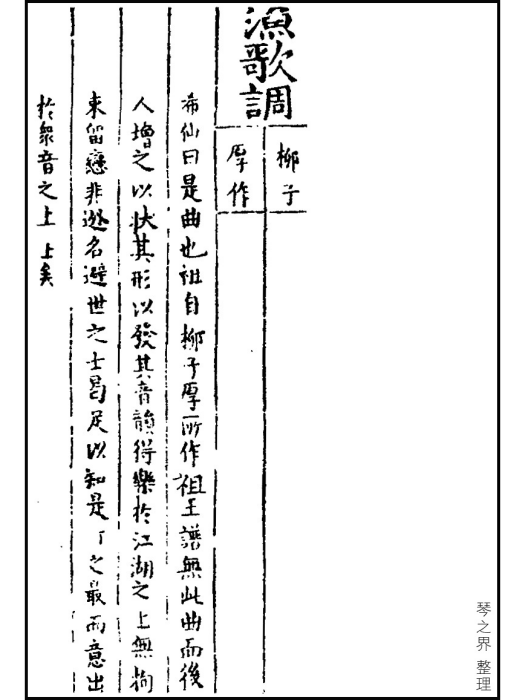 漁歌調
柳子
厚作
希仙曰是曲也祖自柳子厚所作詛王譜無此曲而後
人增之以狀其形以發其音韻得樂於江湖之上無拘
束留戀非逊名避世之士曷足以知是丁之最而意出
於衆音之上上矣
琴之界 整理